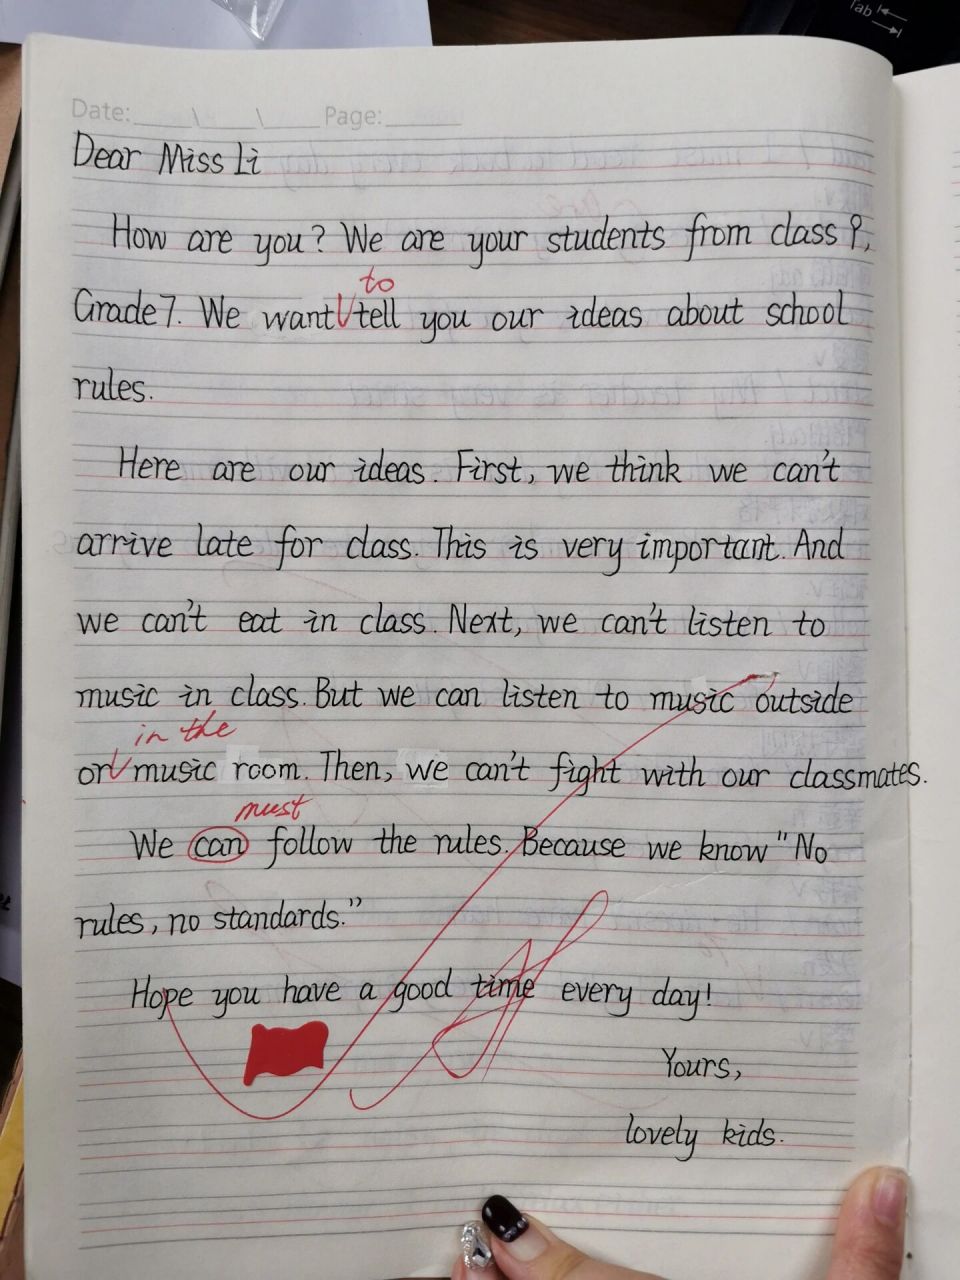 Tab
Date:____\____\____ Page:______
Dear Miss Li
How are you? We are your students from class 9,
to
Grade 7. We want tell you our ideas about school
rules.
Here are our ideas. First, we think we can't
arrive late for class. This is very important. And
we can't eat in class. Next, we can't listen to
music in class. But we can listen to music outside
in the
or music room. Then, we can't fight with our classmates.
must
We can follow the rules. Because we know "No
rules, no standards."
Hope you have a good time every day!
Yours,
lovely kids.